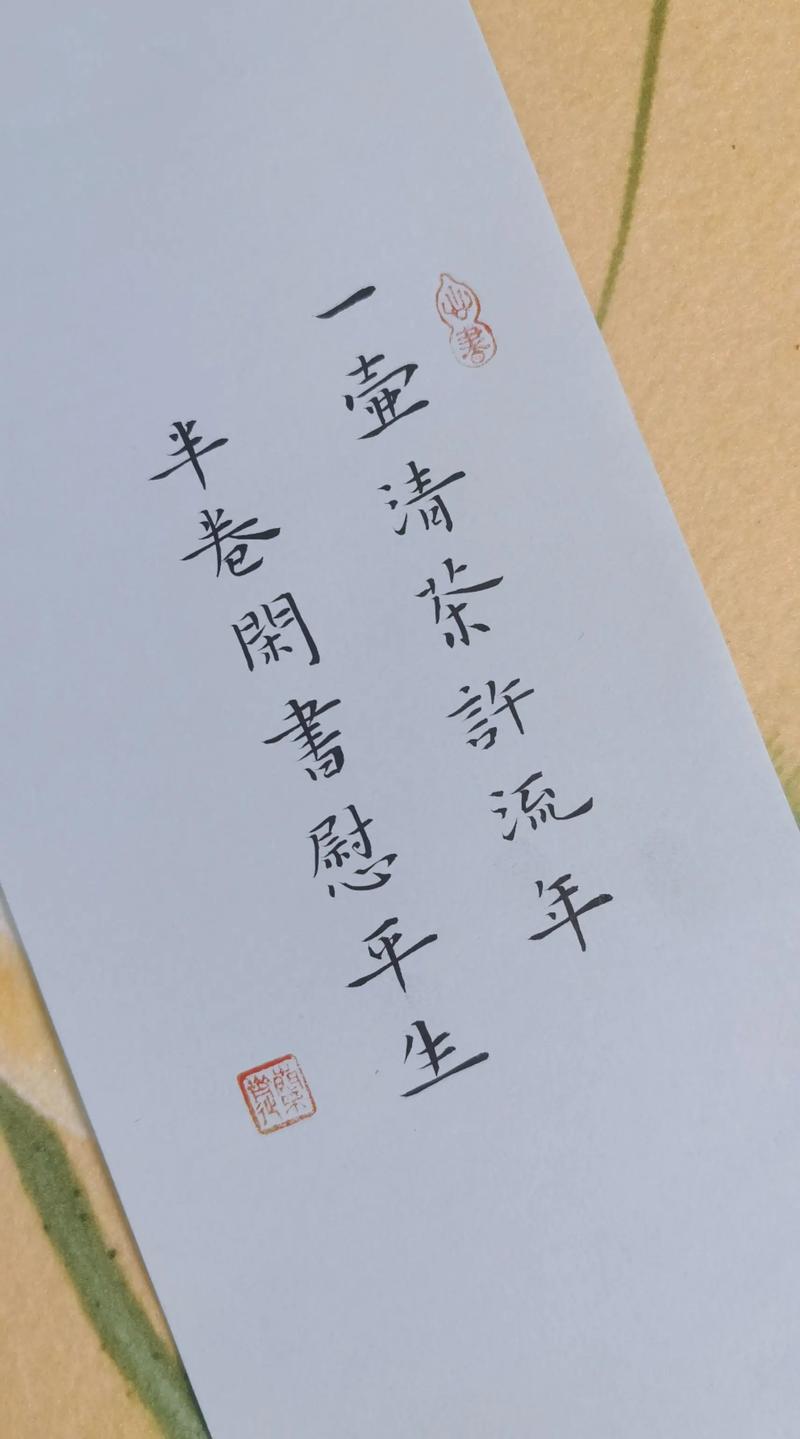 一壺清茶許流年
半卷閑書慰平生